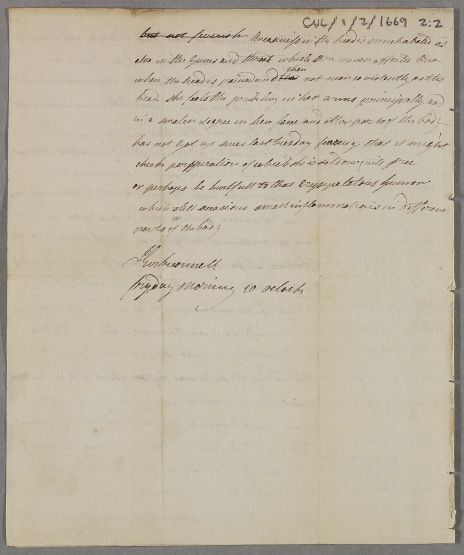 CUL/1/2/1669 2:2
but not feverish the in the head is
also in the Gums and throat which are never affected but
when the head is pained and then not near so violently as the
head. She feels the prickling in her arms principally and
in a smaller degree in her face and other parts of the body
has not got up since last tuesday fearing that it might
check perspiration of which she is seldom quite free
or perhaps be hurtfull to that erysypelatous humor
which still occasions small inflammations in different
parts of the body
Kirkconnell
fryday morning 10 oclock